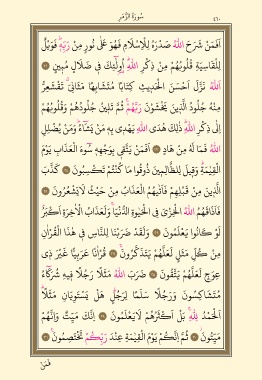 سُورَةُ الزُّمَرِ
٤٦٠
اَفَمَنْ شَرَحَ اللّٰهُ صَدْرَهُ لِلْاِسْلَامِ فَهُوَ عَلٰى نُورٍ مِنْ رَبِّهٖ فَوَيْلٌ
لِلْقَاسِيَةِ قُلُوبُهُمْ مِنْ ذِكْرِ اللّٰهِ اُولٰٓئِكَ فٖى ضَلَالٍ مُبٖينٍ ﴿٢٢﴾
اَللّٰهُ نَزَّلَ اَحْسَنَ الْحَدٖيثِ كِتَابًا مُتَشَابِهًا مَثَانِىَ تَقْشَعِرُّ
مِنْهُ جُلُودُ الَّذٖينَ يَخْشَوْنَ رَبَّهُمْ ثُمَّ تَلٖينُ جُلُودُهُمْ وَقُلُوبُهُمْ
اِلٰى ذِكْرِ اللّٰهِ ذٰلِكَ هُدَى اللّٰهِ يَهْدٖى بِهٖ مَنْ يَشَٓاءُ وَمَنْ يُضْلِلِ
اللّٰهُ فَمَا لَهُ مِنْ هَادٍ ﴿٢٣﴾ اَفَمَنْ يَتَّقٖى بِوَجْهِهٖ سُٓوءَ الْعَذَابِ يَوْمَ
الْقِيٰمَةِ وَقٖيلَ لِلظَّالِمٖينَ ذُوقُوا مَا كُنْتُمْ تَكْسِبُونَ ﴿٢٤﴾ كَذَّبَ
الَّذٖينَ مِنْ قَبْلِهِمْ فَاَتٰيهُمُ الْعَذَابُ مِنْ حَيْثُ لَا يَشْعُرُونَ ﴿٢٥﴾
فَاَذَاقَهُمُ اللّٰهُ الْخِزْىَ فِى الْحَيٰوةِ الدُّنْيَا وَلَعَذَابُ الْاٰخِرَةِ اَكْبَرُ
لَوْ كَانُوا يَعْلَمُونَ ﴿٢٦﴾ وَلَقَدْ ضَرَبْنَا لِلنَّاسِ فٖى هٰذَا الْقُرْاٰنِ
مِنْ كُلِّ مَثَلٍ لَعَلَّهُمْ يَتَذَكَّرُونَ ﴿٢٧﴾ قُرْاٰنًا عَرَبِيًّا غَيْرَ ذٖى
عِوَجٍ لَعَلَّهُمْ يَتَّقُونَ ﴿٢٨﴾ ضَرَبَ اللّٰهُ مَثَلًا رَجُلًا فٖيهِ شُرَكَٓاءُ
مُتَشَاكِسُونَ وَرَجُلًا سَلَمًا لِرَجُلٍ هَلْ يَسْتَوِيَانِ مَثَلًا
اَلْحَمْدُ لِلّٰهِ بَلْ اَكْثَرُهُمْ لَا يَعْلَمُونَ ﴿٢٩﴾ اِنَّكَ مَيِّتٌ وَاِنَّهُمْ
مَيِّتُونَ ﴿٣٠﴾ ثُمَّ اِنَّكُمْ يَوْمَ الْقِيٰمَةِ عِنْدَ رَبِّكُمْ تَخْتَصِمُونَ ﴿٣١﴾
فَمَنْ